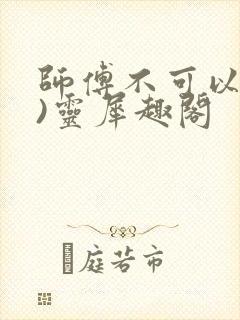 師傅不可以
)靈犀趣閣
庭若市